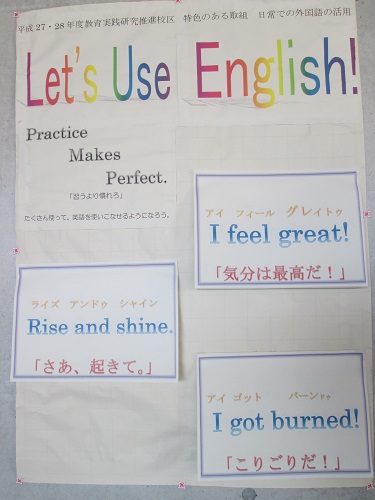 平成27・28年度教育実践研究推進校区 特色のある取組 日常での外国語の活用
Let's Use English!
Practice
Makes
Perfect.
「習うより慣れろ」
たくさん使って、英語を使いこなせるようになろう。
アイ フィール グレイトゥ
I feel great!
「気分は最高だ！」
ライズ アンドゥ シャイン
Rise and shine.
「さあ、起きて。」
アイ ゴット バーンドゥ
I got burned!
「こりごりだ！」